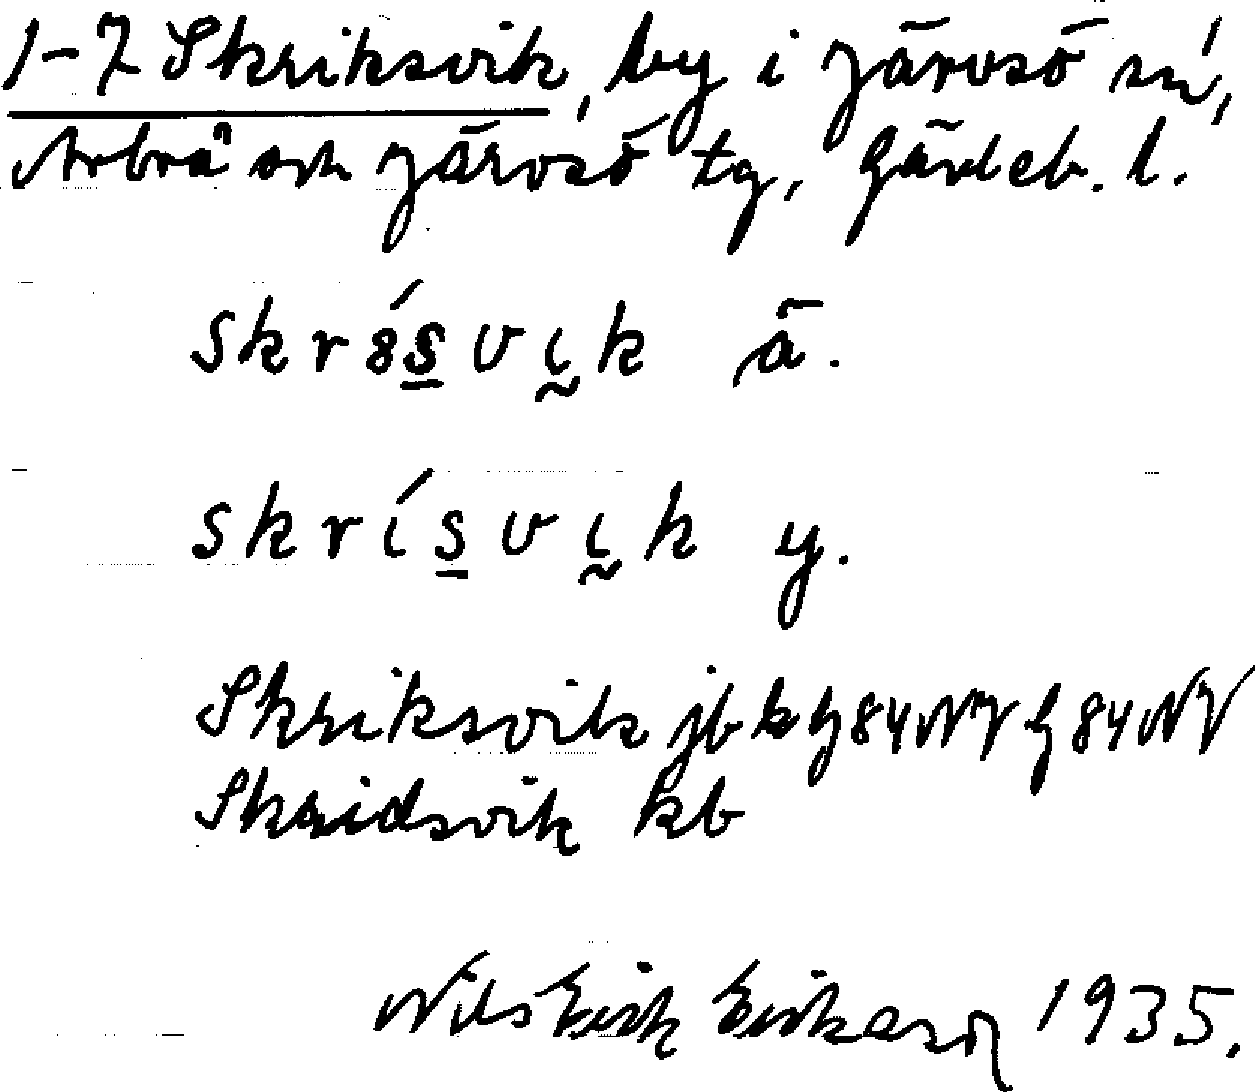 1-7 Skriksvik, by i Järvsö sn,
Arbrå och Järvsö tg, Gävleb. l.
skrȣ́s̲vι̰k ä.
skrís̲vι̰k y.
Skriksvik jb k h 84 NV G 84 NV
Skridsvik kb
Nils Erik Erikson 1935.